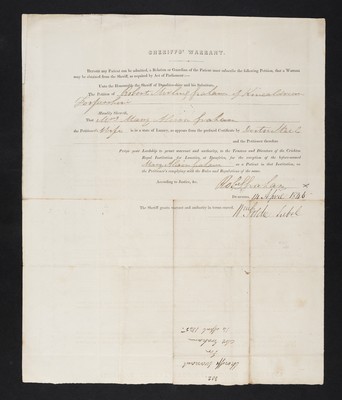 SHERIFFS' WARRANT.
Previous any Patient can be admitted, a Relation or Guardian of the Patient must subscribe the following Petition, that a Warrant
may be obtained from the Sheriff, as required by Act of Parliament:—
Unto the Honourable the Sheriff of Dumfries-shire and his Substitute,
The Petition of Robert Graham of
Humbly sheweth,
That Mrs Mary Graham
the Petitioner's Wife is in a state of Lunacy, as appears from the prefixed Certificate by Doctor
and the Petitioner therefore
Prays your Lordship to grant warrant and authority, to the Trustees and Directors of the Crichton
Royal Institution for Lunatics at Dumfries, for the reception of the before-named
Mary Graham as a Patient in that Institution, on
the Petitioner's complying with the Rules and Regulations of the same.
According to Justice, &c.
Graham
Dumfries, 14 April 1846
The Sheriff grants warrant and authority in terms craved.
Subst
Sheriff's Warrant
for
Mrs Graham
April